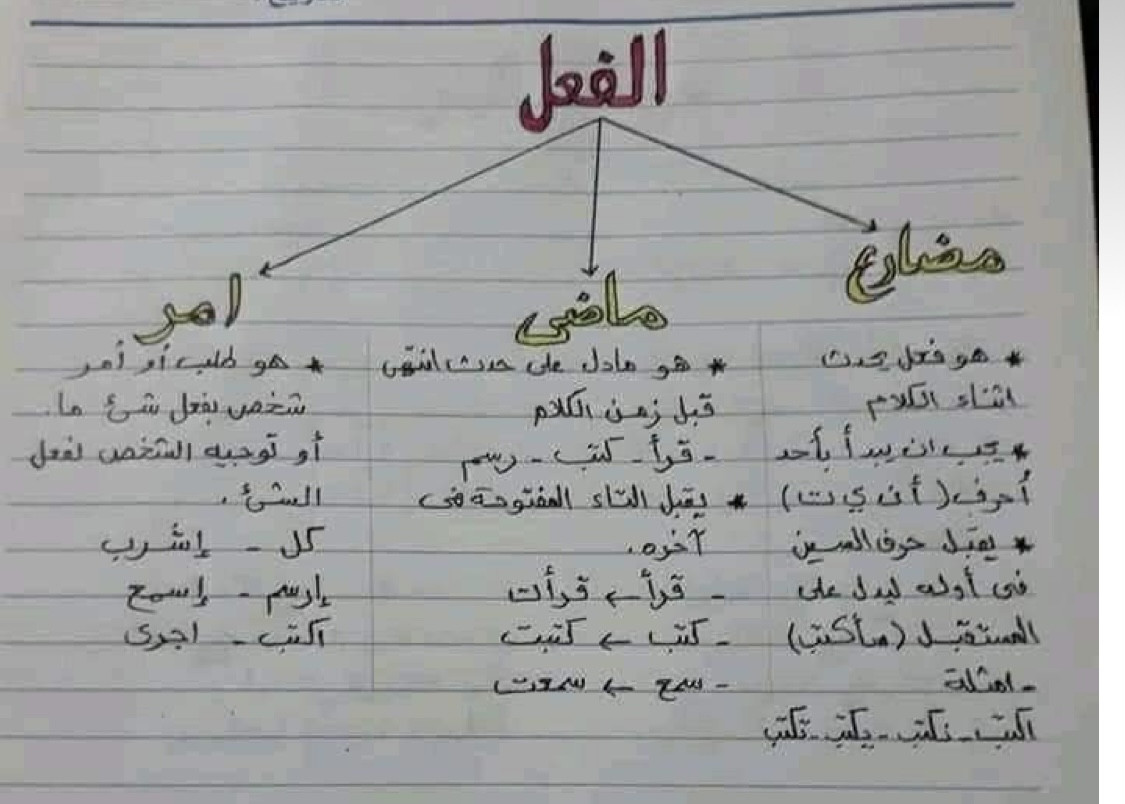 الفعل
مضارع
* هو فعل يحدث
اثناء الكلام
* يجب ان يبدأ بأحد
أحرف (أ ن ي ت)
* يقبل حرف السين
فى أوله ليدل على
المستقبل (سأكتب)
- امثلة
اكتب - نكتب - يكتب - تكتب
ماضى
* هو مادل على حدث انتهى
قبل زمن الكلام
- قرأ - كتب - رسم
* يقبل التاء المفتوحة فى
آخره.
- قرأ ← قرأت
- كتب ← كتبت
- سمع ← سمعت
امر
* هو طلب أو أمر
شخص بفعل شئ ما.
أو توجيه الشخص لفعل
الشئ.
كل - إشرب
إرسم - إسمع
اكتب - اجرى